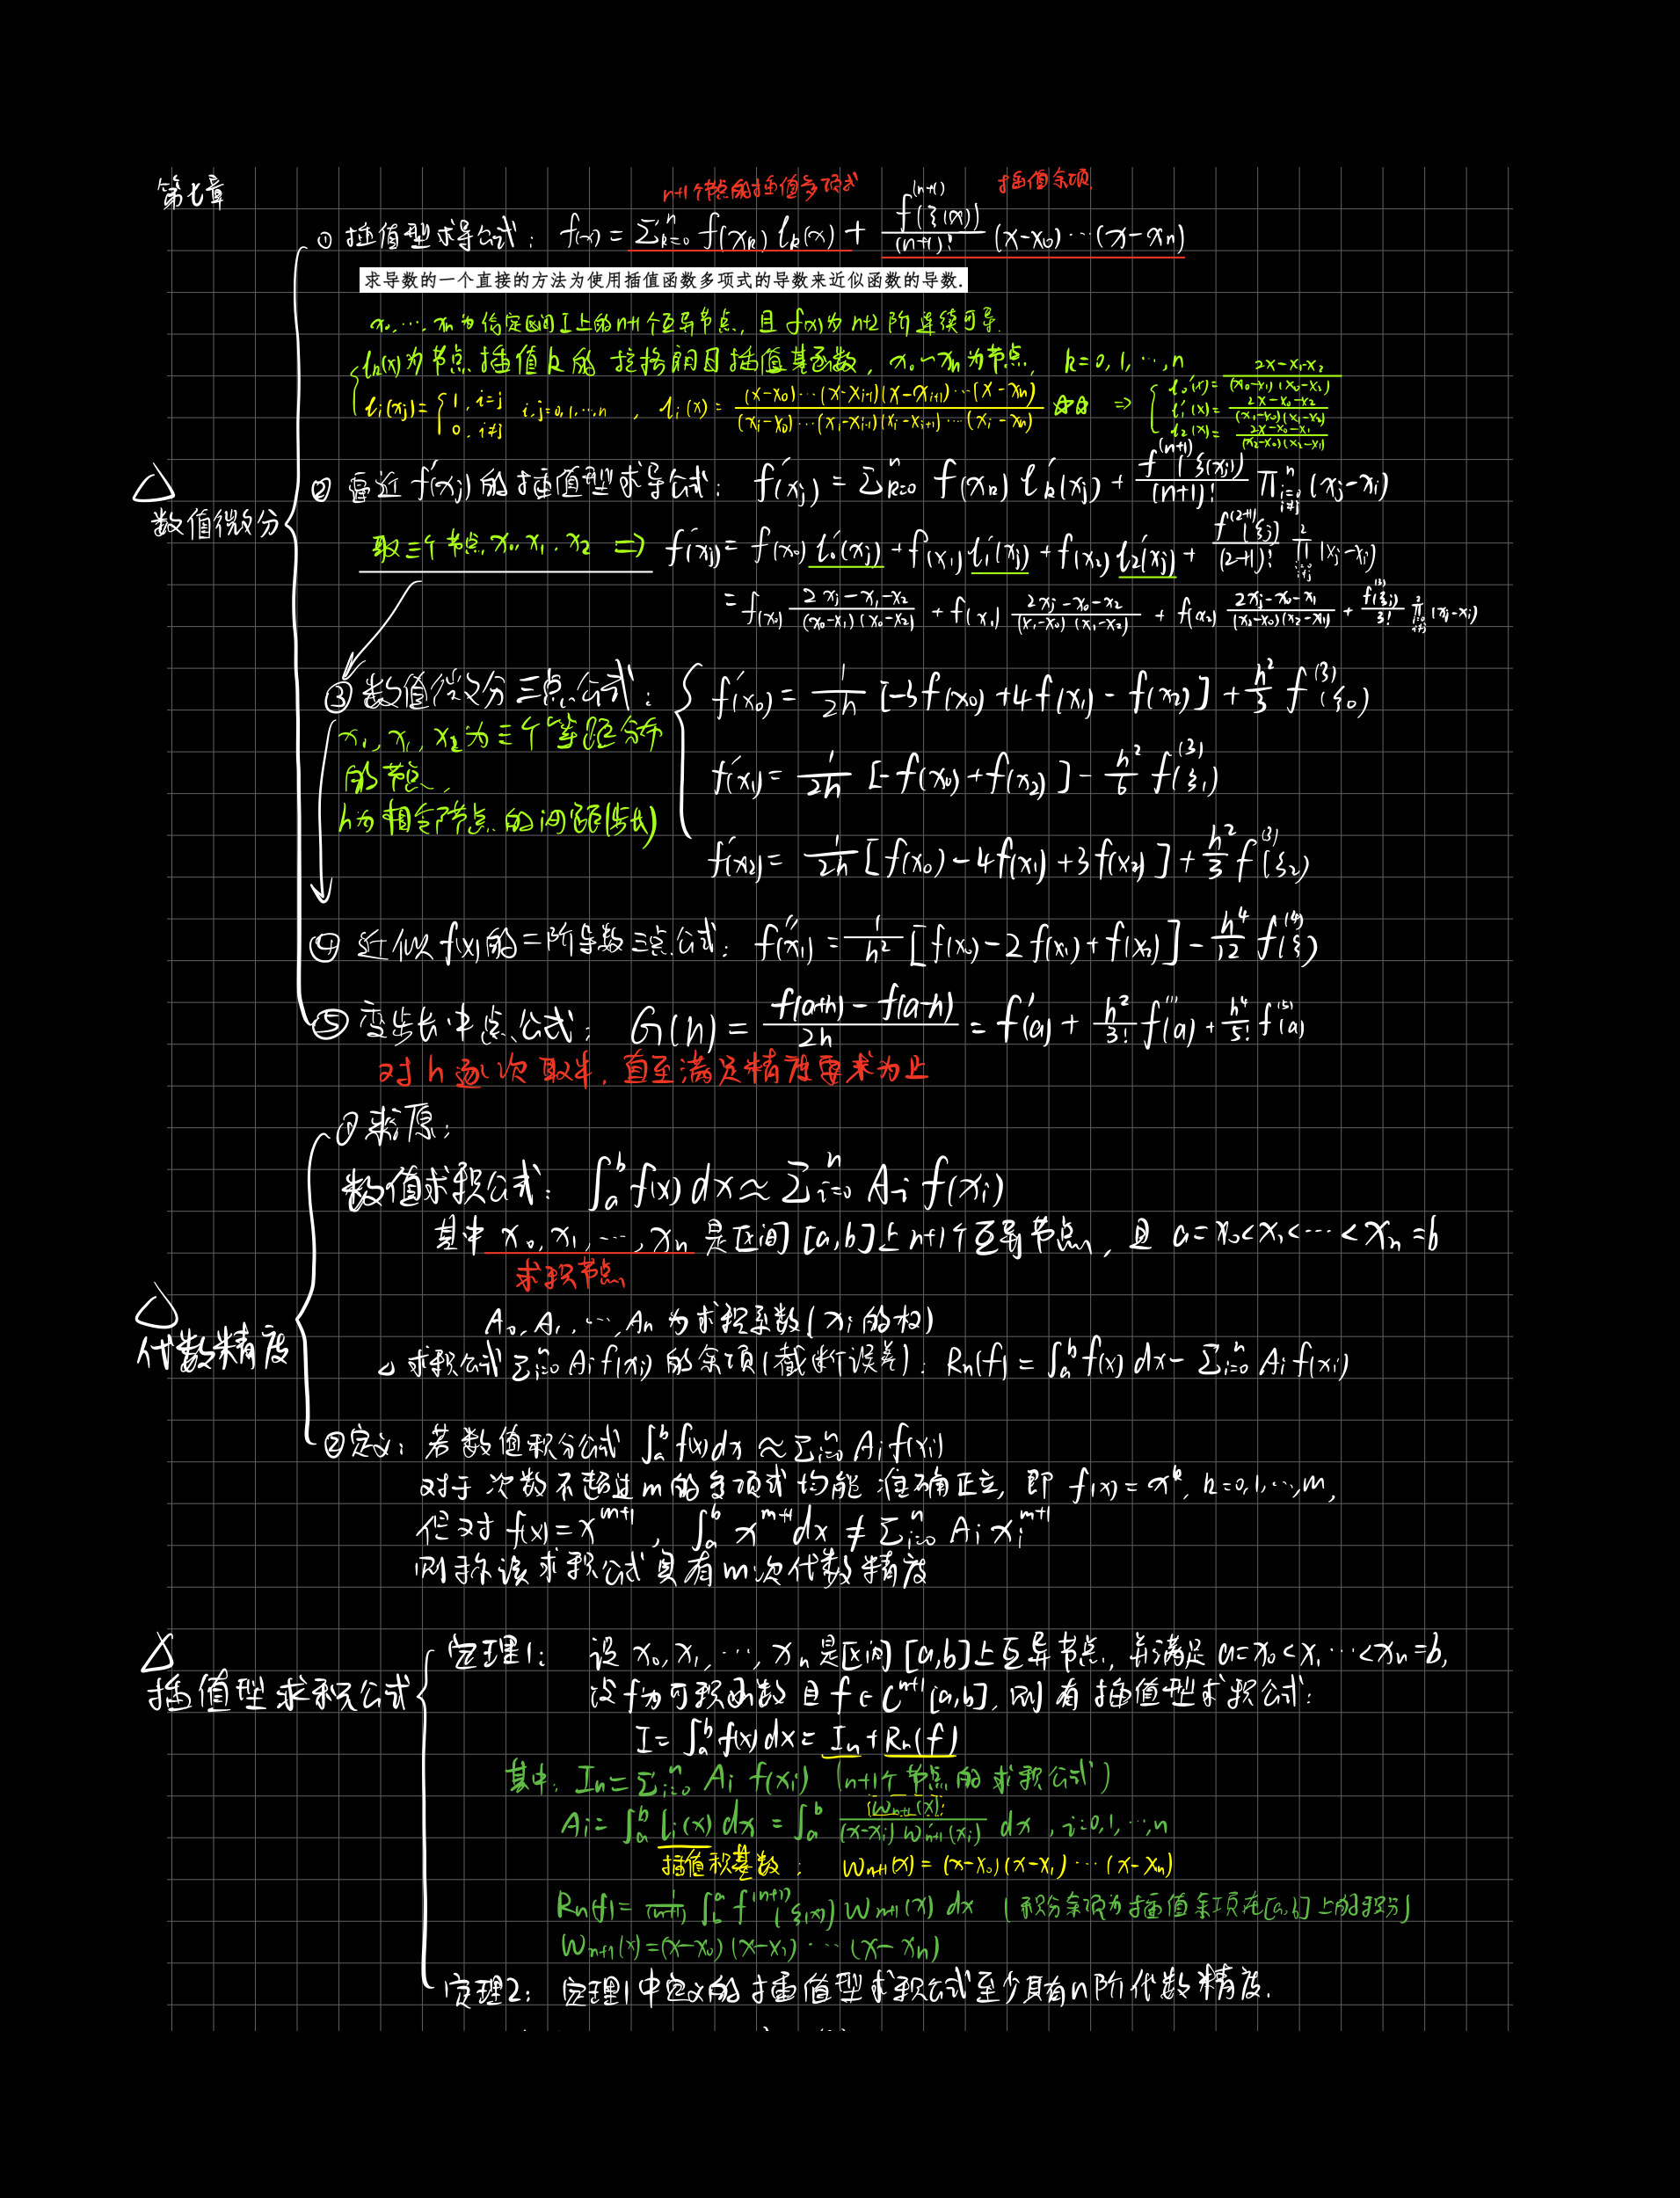 第七章
n+1个节点的插值多项式
插值余项
① 插值型求导公式: f(x) = Σₖ₌₀ⁿ f(xₖ) lₖ(x) + f⁽ⁿ⁺¹⁾(ξ(x))/(n+1)! (x-x₀)…(x-xₙ)
求导数的一个直接的方法为使用插值函数多项式的导数来近似函数的导数.
x₀,…,xₙ为给定区间I上的n+1个互异节点, 且f(x)为n+2阶连续可导.
lₖ(x)为节点插值k的拉格朗日插值基函数, x₀~xₙ为节点, k=0,1,…,n
lᵢ(xⱼ) = { 1, i=j ; 0, i≠j  i,j=0,1,…,n , lᵢ(x) = (x-x₀)…(x-xᵢ₋₁)(x-xᵢ₊₁)…(x-xₙ) / (xᵢ-x₀)…(xᵢ-xᵢ₋₁)(xᵢ-xᵢ₊₁)…(xᵢ-xₙ) ☆☆ ⇒
l₀'(x) = 2x-x₁-x₂ / (x₀-x₁)(x₀-x₂)
l₁'(x) = 2x-x₀-x₂ / (x₁-x₀)(x₁-x₂)
l₂'(x) = 2x-x₀-x₁ / (x₂-x₀)(x₂-x₁)
△ 数值微分
② 靠近f'(xⱼ)的插值型求导公式: f'(xⱼ) = Σₖ₌₀ⁿ f(xₖ) lₖ'(xⱼ) + f⁽ⁿ⁺¹⁾(ξ(xⱼ))/(n+1)! ∏ⁿ ᵢ₌₀,ᵢ≠ⱼ (xⱼ-xᵢ)
取三个节点 x₀, x₁, x₂ ⇒ f'(xⱼ) = f(x₀) l₀'(xⱼ) + f(x₁) l₁'(xⱼ) + f(x₂) l₂'(xⱼ) + f⁽²⁺¹⁾(ξⱼ)/(2+1)! ∏² ᵢ₌₀,ᵢ≠ⱼ (xⱼ-xᵢ)
= f(x₀) 2xⱼ-x₁-x₂/(x₀-x₁)(x₀-x₂) + f(x₁) 2xⱼ-x₀-x₂/(x₁-x₀)(x₁-x₂) + f(x₂) 2xⱼ-x₀-x₁/(x₂-x₀)(x₂-x₁) + f⁽³⁾(ξⱼ)/3! ∏² ᵢ₌₀,ᵢ≠ⱼ (xⱼ-xᵢ)
③ 数值微分三点公式: f'(x₀) = 1/2h [-3f(x₀) + 4f(x₁) - f(x₂)] + h²/3 f⁽³⁾(ξ₀)
x₁, x₁, x₂为三个等距分布
的节点,
f'(x₁) = 1/2h [-f(x₀) + f(x₂)] - h²/6 f⁽³⁾(ξ₁)
h为相邻节点的间距(步长)
f'(x₂) = 1/2h [f(x₀) - 4f(x₁) + 3f(x₂)] + h²/3 f⁽³⁾(ξ₂)
④ 近似f(x)的二阶导数三点公式: f''(x₁) = 1/h² [f(x₀) - 2f(x₁) + f(x₂)] - h⁴/12 f⁽⁴⁾(ξ)
⑤ 变步长中点公式: G(h) = f(a+h) - f(a-h) / 2h = f'(a) + h²/3! f'''(a) + h⁴/5! f⁽⁵⁾(a)
对h逐次取半, 直至满足精度要求为止
△ 代数精度
① 来源:
数值求积公式: ∫ₐᵇ f(x) dx ≈ Σᵢ₌₀ⁿ Aᵢ f(xᵢ)
其中 x₀, x₁, …, xₙ 是区间[a,b]上n+1个互异节点, 且 a=x₀<x₁<…<xₙ=b
求积节点
A₀, A₁, …, Aₙ 为求积系数(xᵢ的权)
△ 求积公式 Σᵢ₌₀ⁿ Aᵢ f(xᵢ) 的余项(截断误差): Rₙ(f) = ∫ₐᵇ f(x) dx - Σᵢ₌₀ⁿ Aᵢ f(xᵢ)
② 定义: 若数值积分公式 ∫ₐᵇ f(x)dx ≈ Σᵢ₌₀ⁿ Aᵢ f(xᵢ)
对于次数不超过m的多项式均能准确正立, 即 f(x) = xᵏ, k=0,1,…,m,
但对 f(x) = xᵐ⁺¹, ∫ₐᵇ xᵐ⁺¹ dx ≠ Σᵢ₌₀ⁿ Aᵢ xᵢᵐ⁺¹
则称该求积公式具有m次代数精度
△ 插值型求积公式
定理1: 设 x₀, x₁, …, xₙ 是区间[a,b]上互异节点, 并满足 a=x₀<x₁…<xₙ=b,
设f为可积函数且 f∈Cⁿ⁺¹[a,b], 则有插值型求积公式:
I = ∫ₐᵇ f(x) dx = Iₙ + Rₙ(f)
其中: Iₙ = Σᵢ₌₀ⁿ Aᵢ f(xᵢ) (n+1个节点的求积公式)
Aᵢ = ∫ₐᵇ lᵢ(x) dx = ∫ₐᵇ ωₙ₊₁(x) / (x-xᵢ) ω'ₙ₊₁(xᵢ) dx, i=0,1,…,n
插值积基数: ωₙ₊₁(x) = (x-x₀)(x-x₁)…(x-xₙ)
Rₙ(f) = 1/(n+1)! ∫_bᵃ f⁽ⁿ⁺¹⁾(ξ(x)) ωₙ₊₁(x) dx (积分余项为插值余项在[a,b]上的积分)
ωₙ₊₁(x) = (x-x₀)(x-x₁)…(x-xₙ)
定理2: 定理1中定义的插值型求积公式至少具有n阶代数精度.